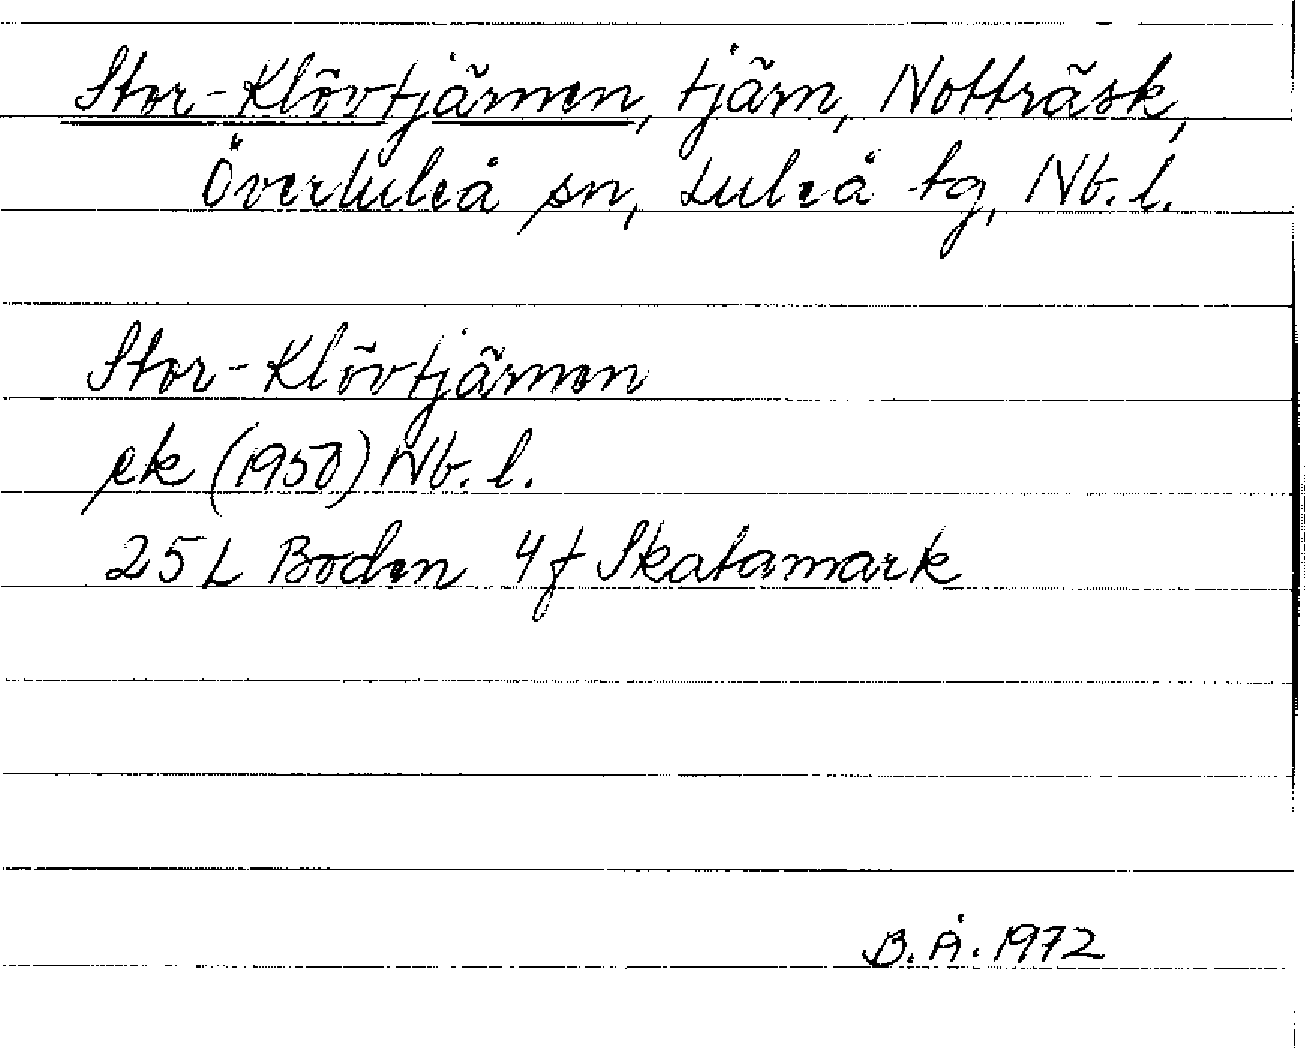 Stor-Klövtjärnen, tjärn, Notträsk,
Överluleå sn, Luleå tg, Nb. l.
Stor-Klövtjärnen
ek (1950) Nb. l.
25 L Boden 4f Skatamark
B.Å. 1972